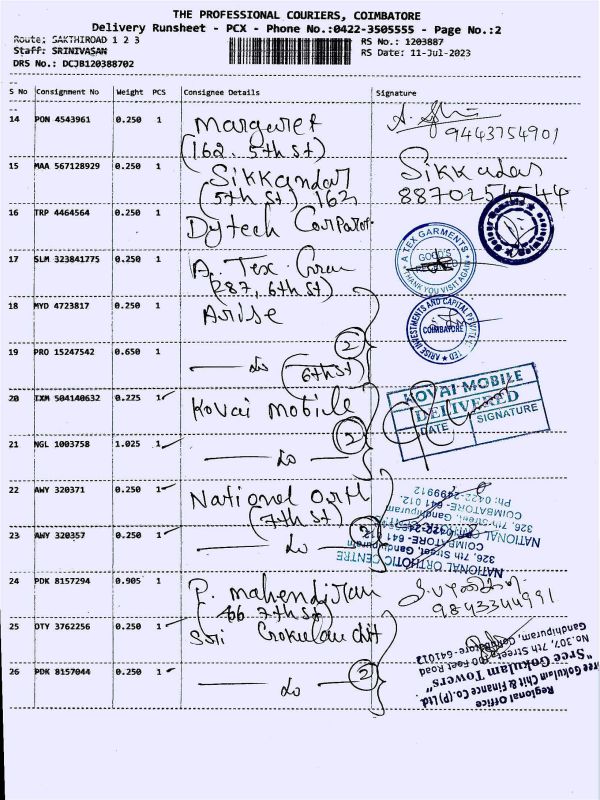 THE PROFESSIONAL COURIERS, COIMBATORE
Delivery Runsheet - PCX - Phone No.:0422-3505555 - Page No.:2
Route: SAKTHIROAD 1 2 3 RS No.: 1203887
Staff: SRINIVASAN RS Date: 11-Jul-2023
DRS No.: DCJB120388702
S No Consignment No Weight PCS Consignee Details Signature
14 PON 4543961 0.250 1 Margaret
9443754901
(162, 5th St)
15 MAA 567128929 0.250 1 Sikkandar Sikkadar
(5th St) 162 8870254544
16 TRP 4464564 0.250 1 Dytech
A TEX GARMENTS
GOODS
THANK YOU VISIT AGAIN
17 SLM 323841775 0.250 1 A. Tex
(287, 6th St)
18 MYD 4723817 0.250 1 Arise
ARISE INVESTMENTS AND CAPITAL
COIMBATORE
19 PRO 15247542 0.650 1 do 2
(6th St)
20 IXM 504140632 0.225 1 Kovai mobile
KOVAI MOBILE
DELIVERED
DATE SIGNATURE
21 NGL 1003758 1.025 1 do 2
22 AWY 320371 0.250 1 National Orth
(7th St)
Ph: 0422-2499912
COIMBATORE - 641 012.
326, 7th Street, Gandhipuram
23 AWY 320357 0.250 1 do 2
NATIONAL ORTHOTIC CENTRE
326, 7th Street, Gandhipuram
COIMBATORE - 641 012.
24 PDK 8157294 0.905 1 P. mahendiran
(66 7th St) 9843344991
25 DTY 3762256 0.250 1 Sri Gokulam chit
26 PDK 8157044 0.250 1 do 2
Regional Office
Sree Gokulam Chit & Finance Co.(P) Ltd.
"Sree Gokulam Towers"
No.307, 7th Street, 100 Feet Road
Gandhipuram, Coimbatore-641012